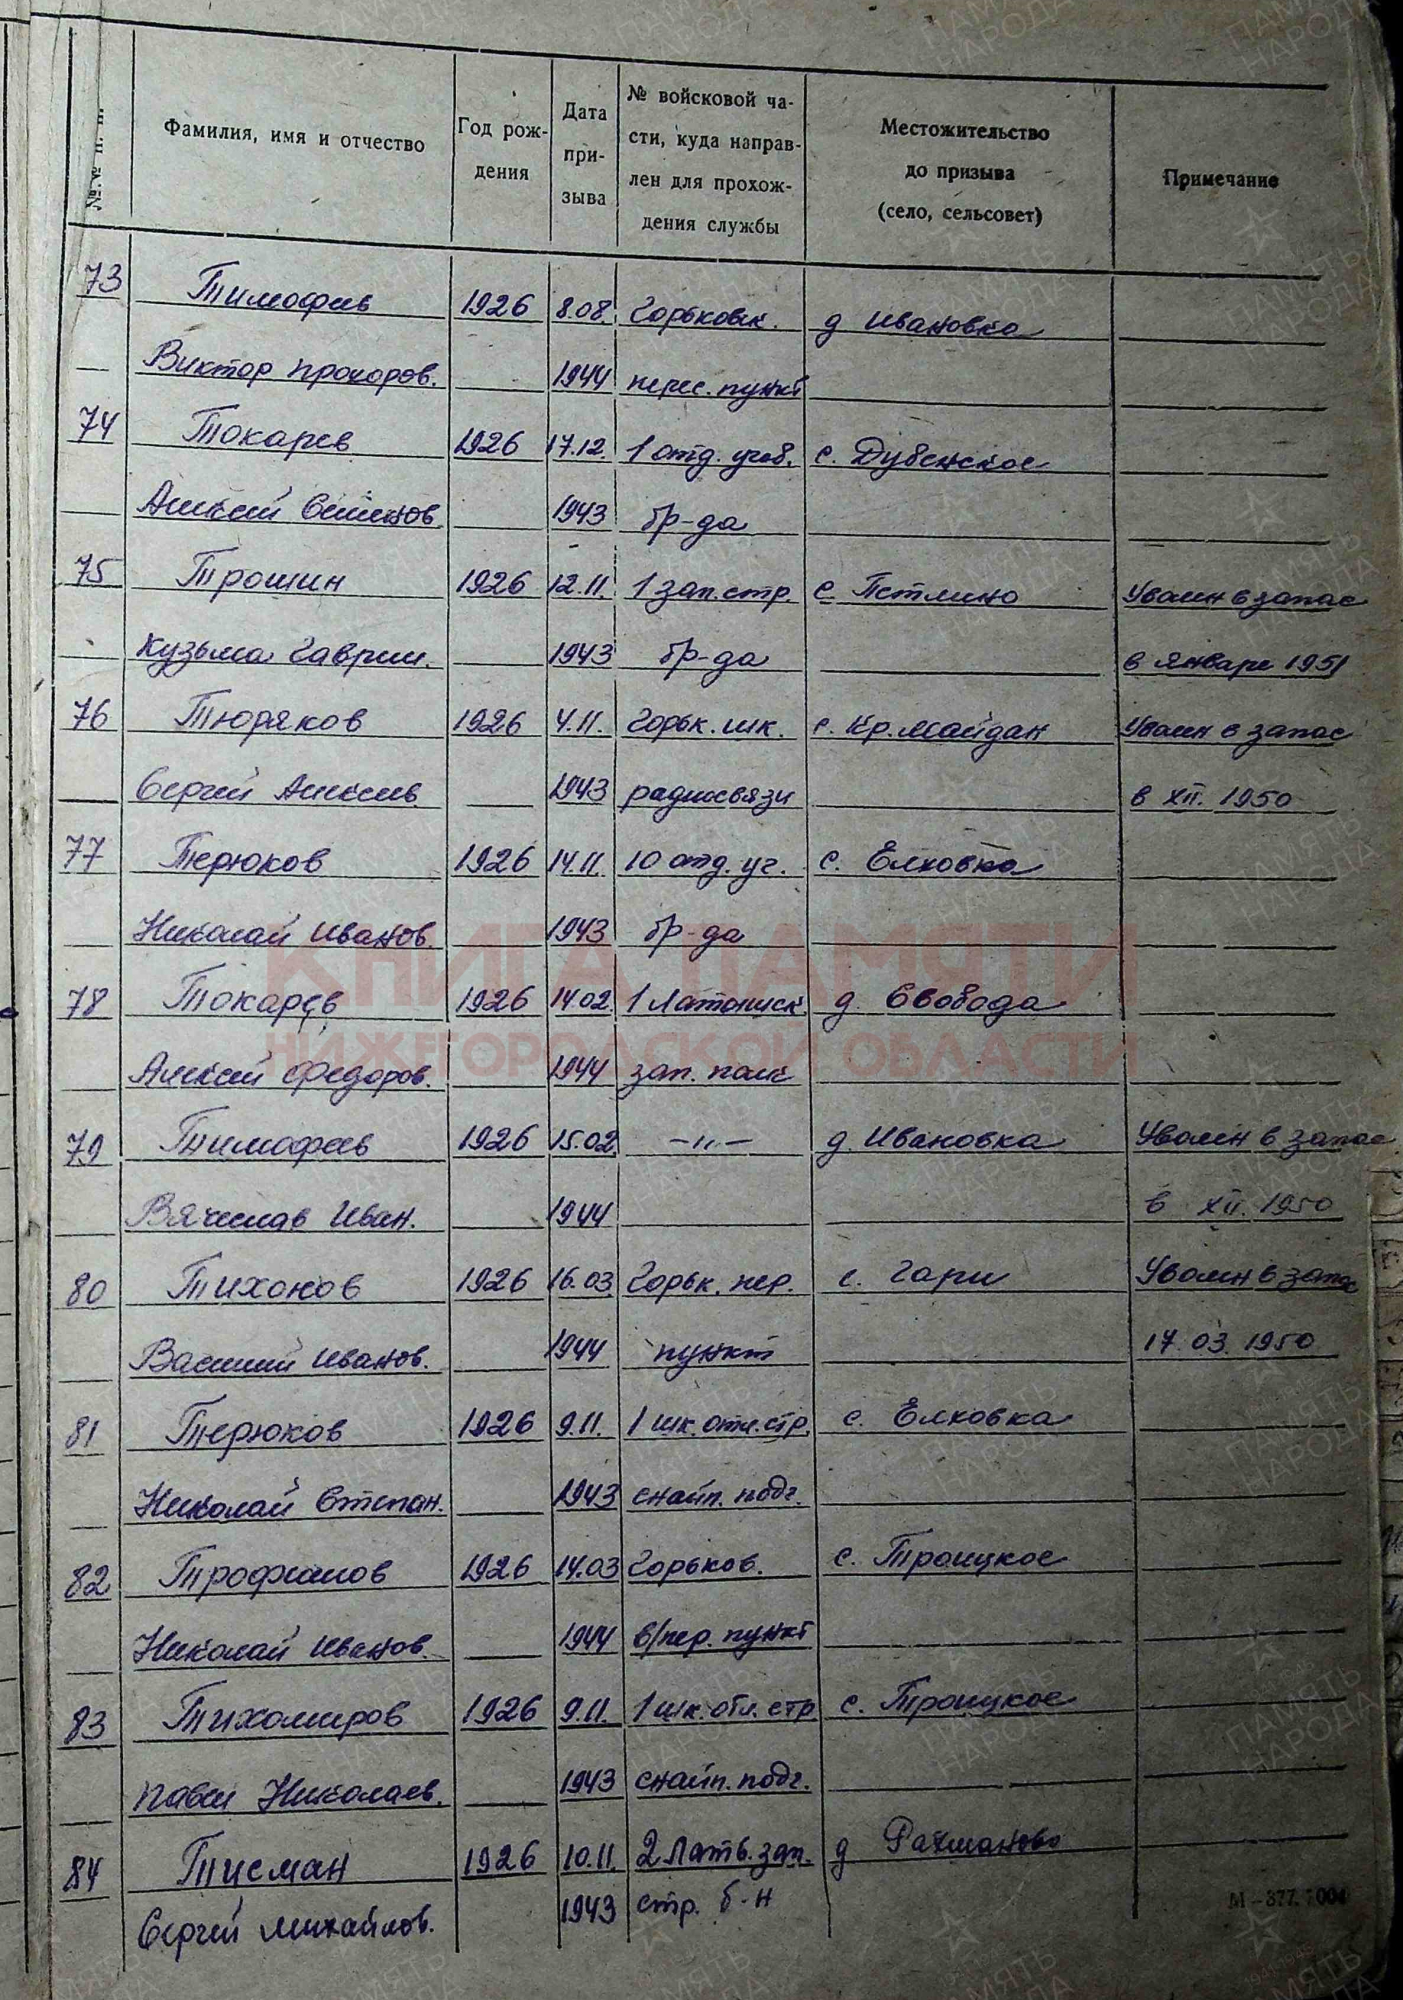 №№ п. п.
Фамилия, имя и отчество
Год рож-
дения
Дата
при-
зыва
№ войсковой ча-
сти, куда направ-
лен для прохож-
дения службы
Местожительство
до призыва
(село, сельсовет)
Примечание
73 Тимофеев 1926 8.08. Горьковск. д Ивановка
Виктор Прохоров. 1944 перес. пункт
74 Токарев 1926 17.12. 1 отд. учеб. с. Дубенское
Алексей Семенов 1943 бр-да
75 Трошин 1926 12.11. 1 зап. стр. с Петлино Уволен в запас
Кузьма Гаврил. 1943 бр-да в январе 1951
76 Тюряков 1926 4.11. Горьк. шк. с. Кр. Майдан Уволен в запас
Сергей Алексеев 1943 радиосвязи в XII. 1950
77 Терюков 1926 14.11. 10 отд. уч. с. Елховка
Николай Иванов. 1943 бр-да
78 Токарев 1926 14.02. 1 Латышск. д. Свобода
Алексей Федоров. 1944 зап. полк
79 Тимофеев 1926 15.02. —"— д. Ивановка Уволен в запас
Вячеслав Иван. 1944 в XII. 1950
80 Тихонов 1926 16.03. Горьк. пер. с. Гари Уволен в запас
Василий Иванов. 1944 пункт 17.03.1950
81 Терюков 1926 9.11. 1 шк. отл. стр. с. Елховка
Николай Степан. 1943 снайп. подг.
82 Трофимов 1926 14.03 Горьков. с. Троицкое
Николай Иванов. 1944 в/пер. пункт
83 Тихомиров 1926 9.11. 1 шк. отл. стр с. Троицкое
Павел Николаев. 1943 снайп. подг.
84 Тисман 1926 10.11. 2 Латв. зап. д Рахманово
Сергей Михайлов. 1943 стр. б-н
КНИГА ПАМЯТИ
НИЖЕГОРОДСКОЙ ОБЛАСТИ
ПАМЯТЬ
НАРОДА